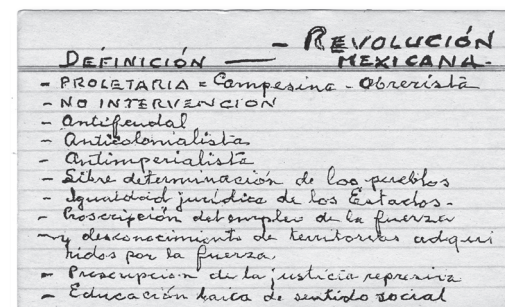 - REVOLUCIÓN
DEFINICIÓN — MEXICANA-
- PROLETARIA = Campesina - Obrerista
- NO INTERVENCION
- Antifeudal
- Anticolonialista
- Antimperialista
- Libre determinación de los pueblos
- Igualdad jurídica de los Estados.-
- Proscripción del empleo de la fuerza
- y desconocimiento de territorios adqui
ridos por la fuerza.
- Proscripcion de la justicia represiva
- Educación laica de sentido social